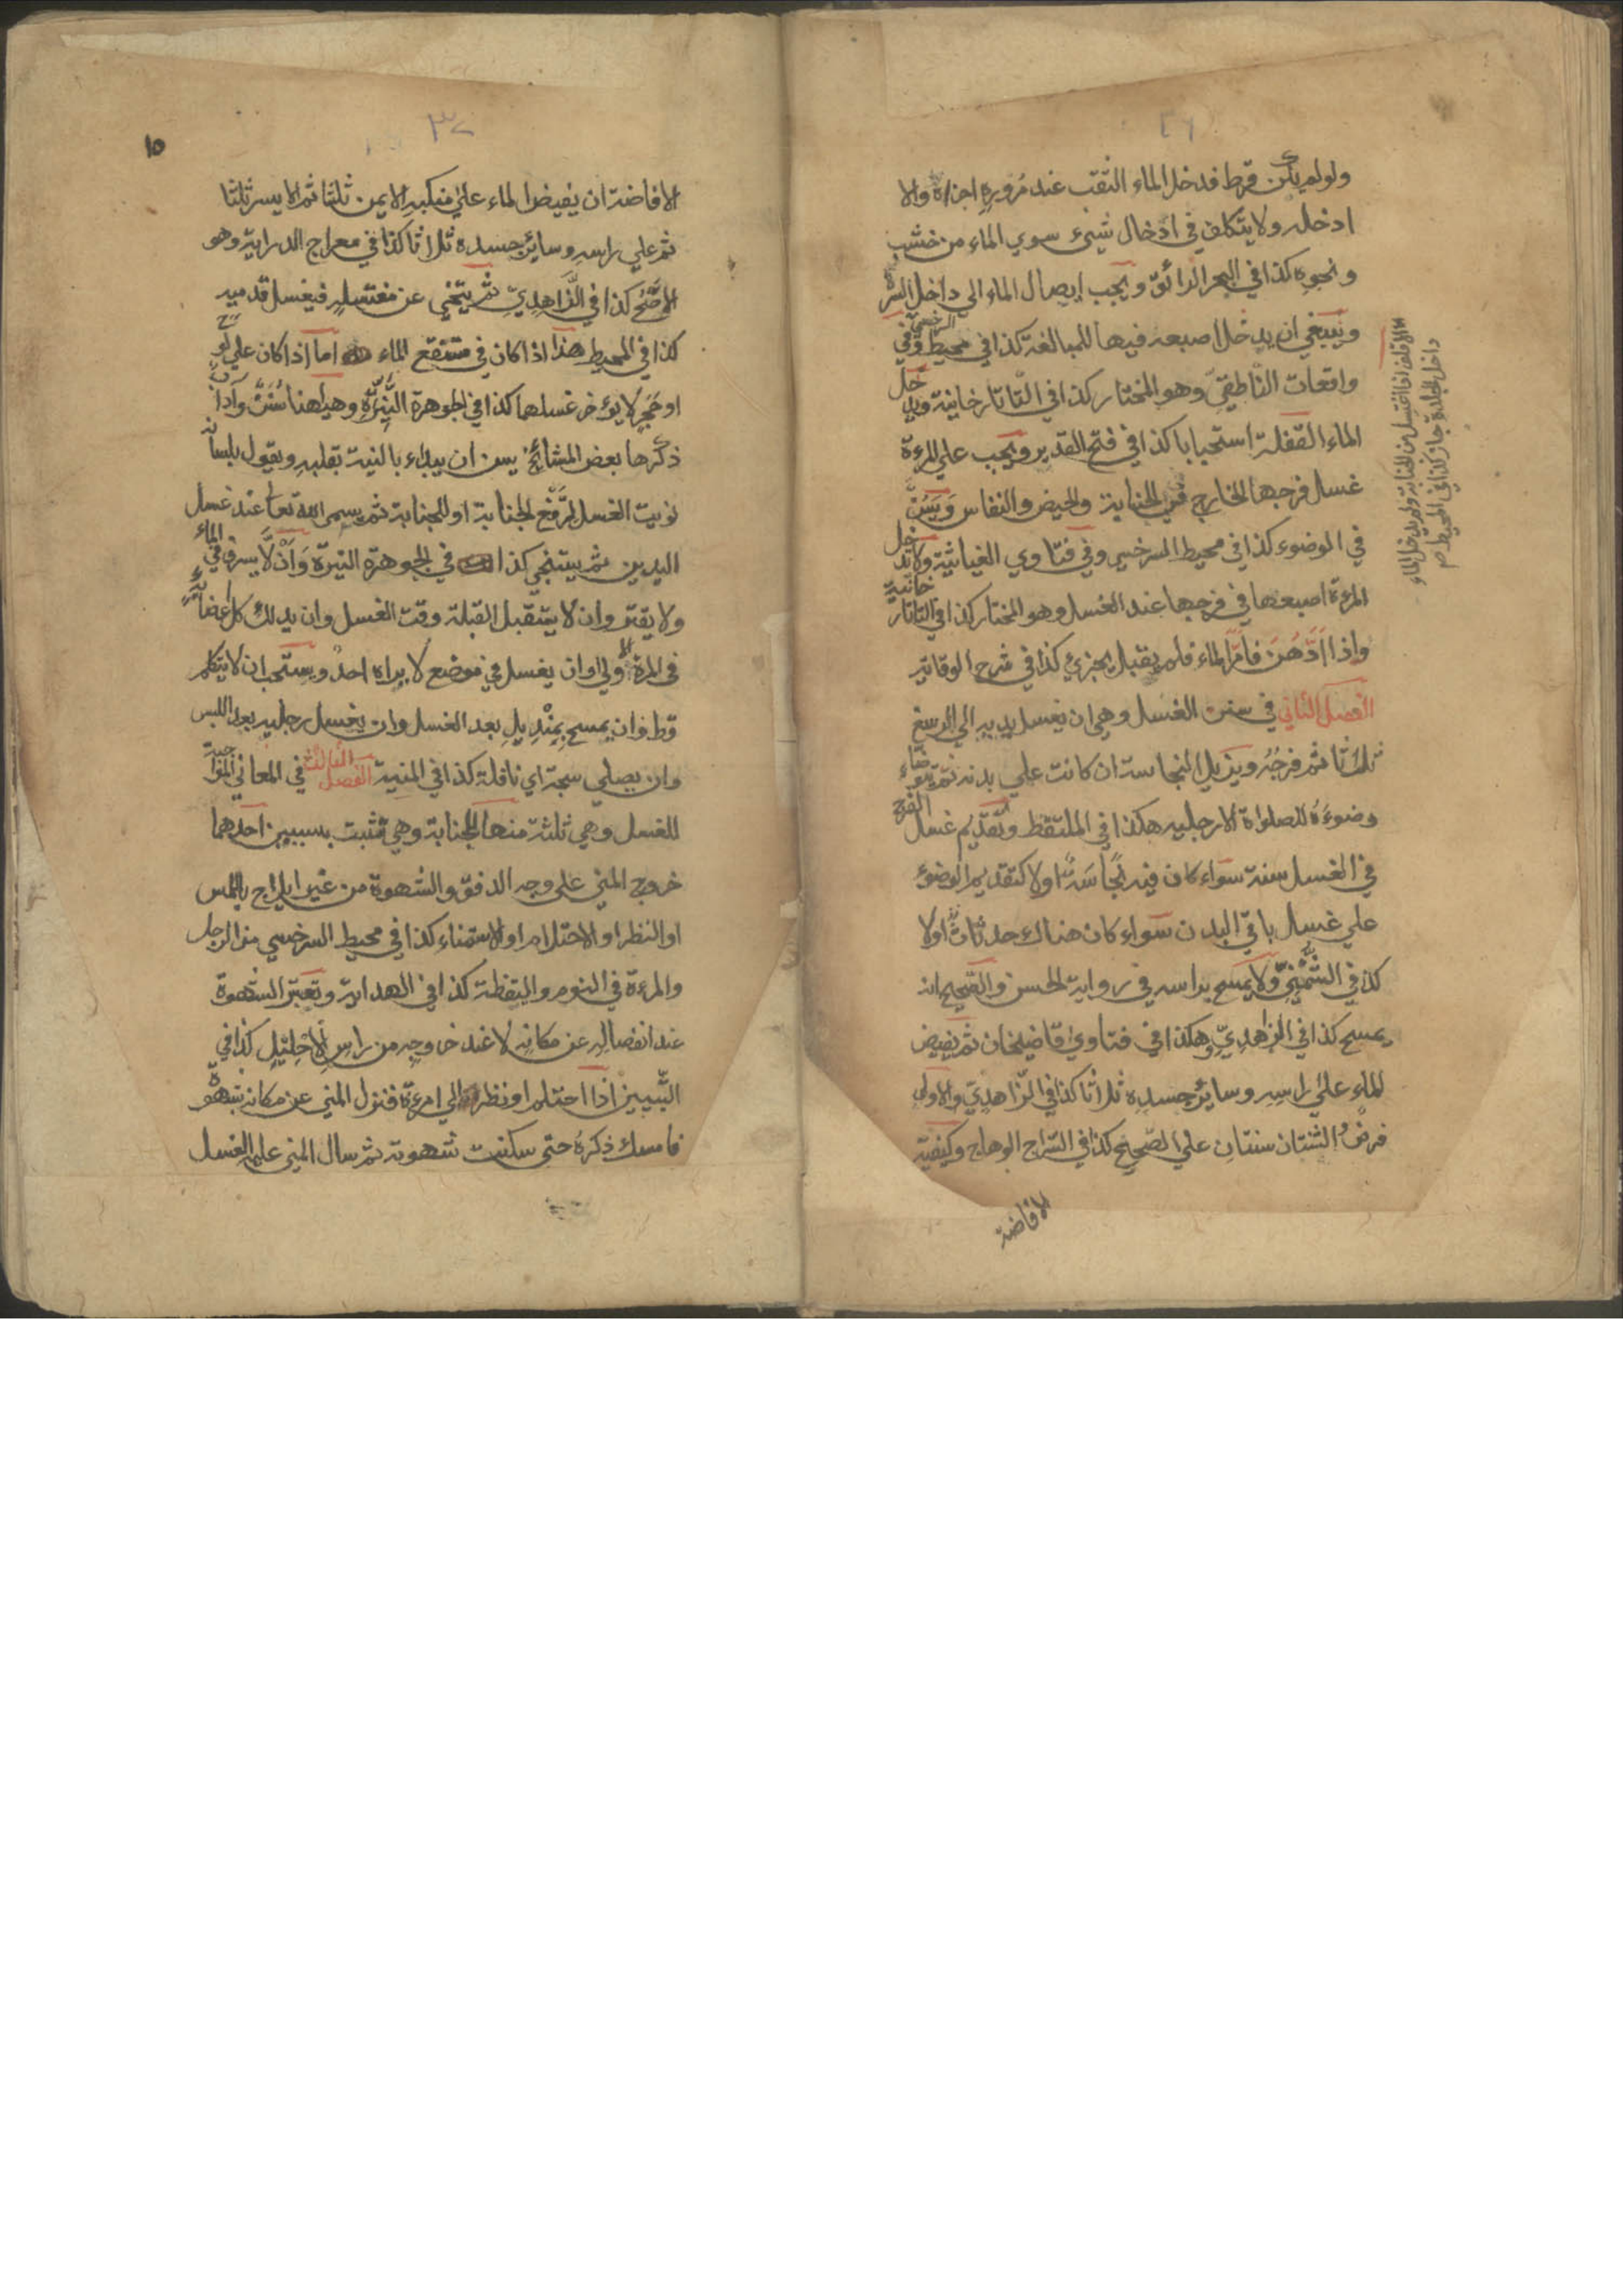 ٢٦
ولو لم يكن قرط فدخل الماء الثقب عند مروره اجزاه والا
ادخله ولا يتكلف في ادخال شيء سوي الماء من خشب
ونحوه كذا في البحر الرائق ويجب ايصال الماء الي داخل السرة
وينبغي ان يدخل اصبعه فيها للمبالغة كذا في محيط السرخسي وفي
واقعات الناطقي وهو المختار كذا في التاتارخانية ويدخل
الماء القلفة استحبابا كذا في فتح القدير ويجب علي المرءة
غسل فرجها الخارج في الجنابة والحيض والنفاس ويسن
في الوضوء كذا في محيط السرخسي وفي فتاوي الغياثية ولا تدخل
المرءة اصبعها في فرجها عند الغسل وهو المختار كذا في التاتارخانية
واذا ادهن فامر الماء فلم يقبل يجزئ كذا في شرح الوقاية
الفصل الثاني في سنن الغسل وهي ان يغسل يديه الي الرسغ
ثلاثا ثم فرجه ويزيل النجاسة ان كانت علي بدنه ثم يتوضاء
وضوءه للصلواة الا رجليه هكذا في الملتقط وتقديم غسل الفرج
في الغسل سنة سواء كان فيه نجاسة او لا كتقديم الوضوء
علي غسل باقي البدن سواء كان هناك حدث او لا
كذا في الشمني ولا يمسح براسه في رواية الحسن والصحيح انه
يمسح كذا في الزاهدي وهكذا في فتاوي قاضيخان ثم يفيض
الماء علي راسه وسائر جسده ثلاثا كذا في الزاهدي والاولي
فرض والثنتان سنتان علي الصحيح كذا في السراج الوهاج وكيفية
الافاضة
الاقلف اذا اغتسل من الجنابة ولم يدخل الماء
داخل الجلدة جاز كذا في المحيط صح
١٥
الافاضة ان يفيض الماء علي منكبه الايمن ثلثا ثم الايسر ثلثا
ثم علي راسه وسائر جسده ثلاثا كذا في معراج الدراية وهو
الاصح كذا في الزاهدي ثم يتنحي عن مغتسله فيغسل قدميه
كذا في المحيط هذا اذا كان في مستنقع الماء اما اذا كان علي لوح
او حجر لا يؤخر غسلهما كذا في الجوهرة النيرة وهيهنا سنن وآداب
ذكرها بعض المشائخ يسن ان يبداء بالنية بقلبه ويقول بلسانه
نويت الغسل لرفع الجنابة او للجنابة ثم يسمي الله تعا عند غسل
اليدين ثم يستنجي كذا في الجوهرة النيرة وان لا يسرف في الماء
ولا يقتر وان لا يستقبل القبلة وقت الغسل وان يدلك كل اعضائه
في المرة الاولي وان يغسل في موضع لا يراه احد ويستحب ان لا يتكلم
قط وان يمسح بمنديل بعد الغسل وان يغسل رجليه بعد اللبس
وان يصلي سبحة اي نافلة كذا في المنية الفصل الثالث في المعاني الموجبة
للغسل وهي ثلثة منها الجنابة وهي تثبت بسببين احدهما
خروج المني علي وجه الدفق والشهوة من غير ايلاج باللمس
او النظر او الاحتلام او الاستمناء كذا في محيط السرخسي من الرجل
والمرءة في النوم واليقظة كذا في الهداية وتعتبر الشهوة
عند انفصاله عن مكانه لا عند خروجه من راس الاحليل كذا في
التبيين اذا احتلم او نظر الي امرءة فنزل المني عن مكانه بشهوة
فامسك ذكره حتي سكنت شهوته ثم سال المني عليه الغسل